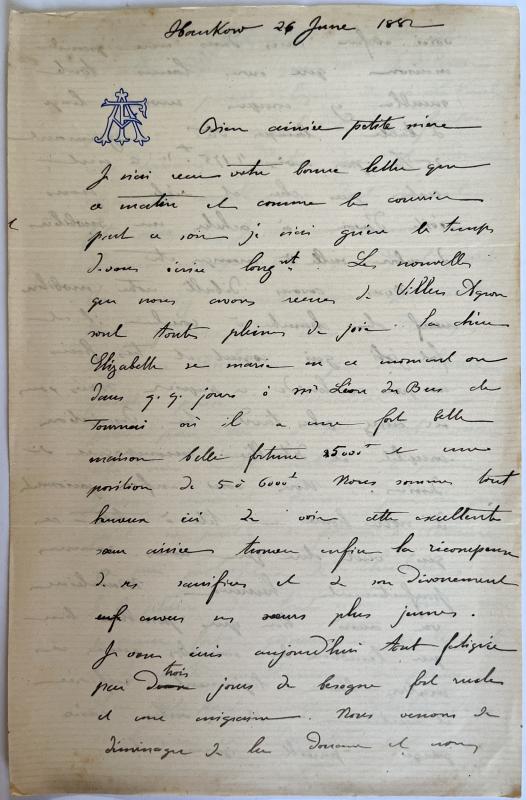 Hankow 26 June 1882
AF
Bien aimée petite mère
Je n'ai recu votre bonne lettre que
ce matin et comme le courrier
part ce soir je n'ai guère le temps
de vous écrire longnt. Les nouvelles
que nous avons recues de Villers Agron
sont toutes pleines de joie. La chère
Elizabeth se marie en ce moment ou
dans q.q. jours à Mr Léon du Bus de
Tournai où il a une fort belle
maison belle fortune 25000f et une
position de 5 à 6000f. Nous sommes tout
heureux ici de voir cette excellente
sœur aînée trouver enfin la récompense
de ses sacrifices et de son dévouement
envers ses sœurs plus jeunes.
Je vous écris aujourd'hui tout fatiguée
par trois jours de besogne fort rudes
et une migraine. Nous venons de
déménager de la douane et nous